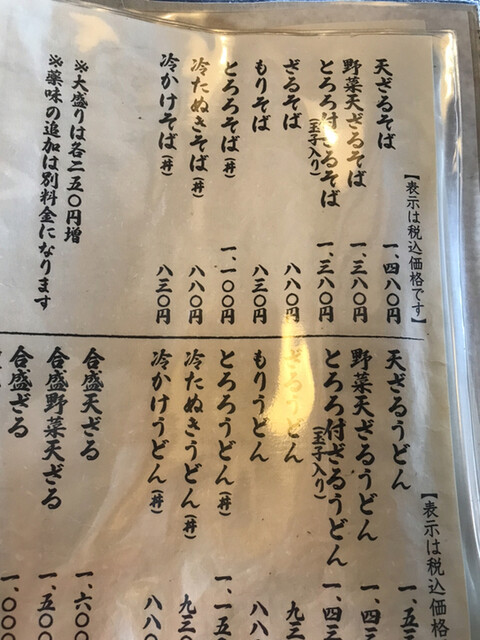 【表示は税込価格です】
天ざるそば 一、四八〇円
野菜天ざるそば 一、三八〇円
とろろ付ざるそば(玉子入り) 一、三八〇円
ざるそば 八八〇円
もりそば 八三〇円
とろろそば(丼) 一、一〇〇円
冷たぬきそば(丼) 八八〇円
冷かけそば(丼) 八三〇円
※大盛りは各二五〇円増
※薬味の追加は別料金になります
【表示は税込価格
天ざるうどん 一、五
野菜天ざるうどん 一、四
とろろ付ざるうどん(玉子入り) 一、四三
ざるうどん 九三
もりうどん 八八
とろろうどん(丼) 一、一五
冷たぬきうどん(丼) 九三
冷かけうどん(丼) 八八
合盛天ざる 一、六〇
合盛野菜天ざる 一、五〇
合盛ざる 一、〇〇